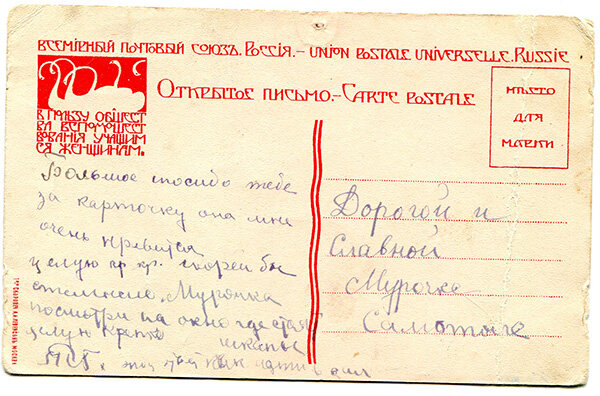 ВСЕМІРНЫЙ ПОЧТОВЫЙ СОЮЗЪ. РОССІЯ.— UNION POSTALE UNIVERSELLE. RUSSIE
ОТКРЫТОЕ ПИСЬМО.—CARTE POSTALE
МѢСТО
ДЛЯ
МАРКИ
В ПОЛЬЗУ ОБЩЕСТ
ВА ВСПОМОЩЕСТ
ВОВАНІЯ УЧАЩИМ
СЯ ЖЕНЩИНАМ.
Большое спосибо тебе
за карточку она мни
очень нравится
целую кр. кр. скорей бы
Мурочка
посмотри на окно где стая
целую крепко
Дорогой и
Славной
Мурочке